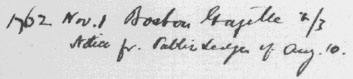 1762 Nov. 1 Boston Gazette 2/3
Notice fr. Public Ledger of Aug. 10.